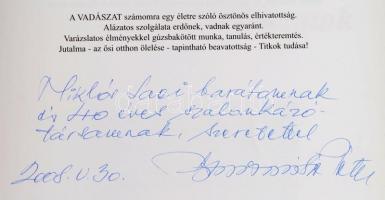 A VADÁSZAT számomra egy életre szóló ösztönös elhivatottság.
Alázatos szolgálata erdőnek, vadnak egyaránt.
Varázslatos élményekkel gúzsbakötött munka, tanulás, értékteremtés.
Jutalma - az ősi otthon ölelése - tapintható beavatottság - Titkok tudása!
Miklós Laci barátomnak
és 40 éves szalonkázó-
társamnak, szeretettel
2008. V. 30.